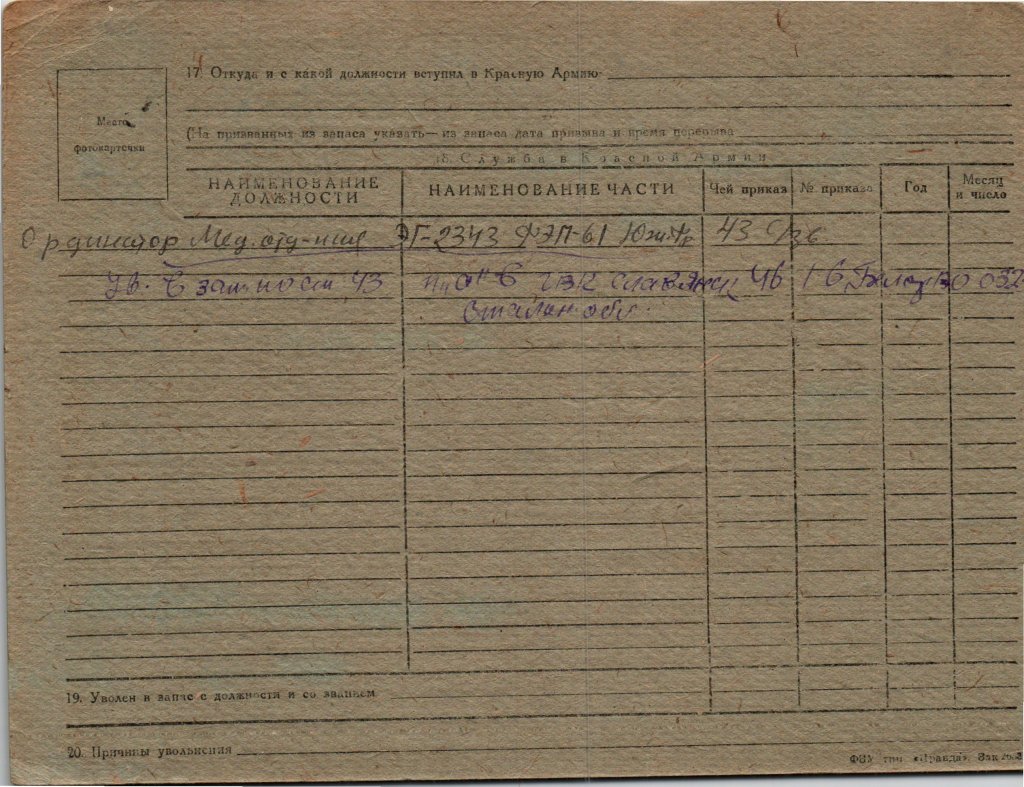 Место
фотокарточки
17. Откуда и с какой должности вступил в Красную Армию
(На призванных из запаса указать — из запаса дата призыва и время перерыва
18. Служба в Красной Армии
НАИМЕНОВАНИЕ ДОЛЖНОСТИ
НАИМЕНОВАНИЕ ЧАСТИ
Чей приказ
№ приказа
Год
Месяц и число
Ординатор Мед. отд-ния ЭГ-2343 ФЭП-61 Юж.Фр 43
Ув. в зап. по ст 43 п. "а" ГВК Славянск 46
Сталин. обл.
19. Уволен в запас с должности и со званием
20. Причины увольнения
ФЗУ тип. «Правда». Зак